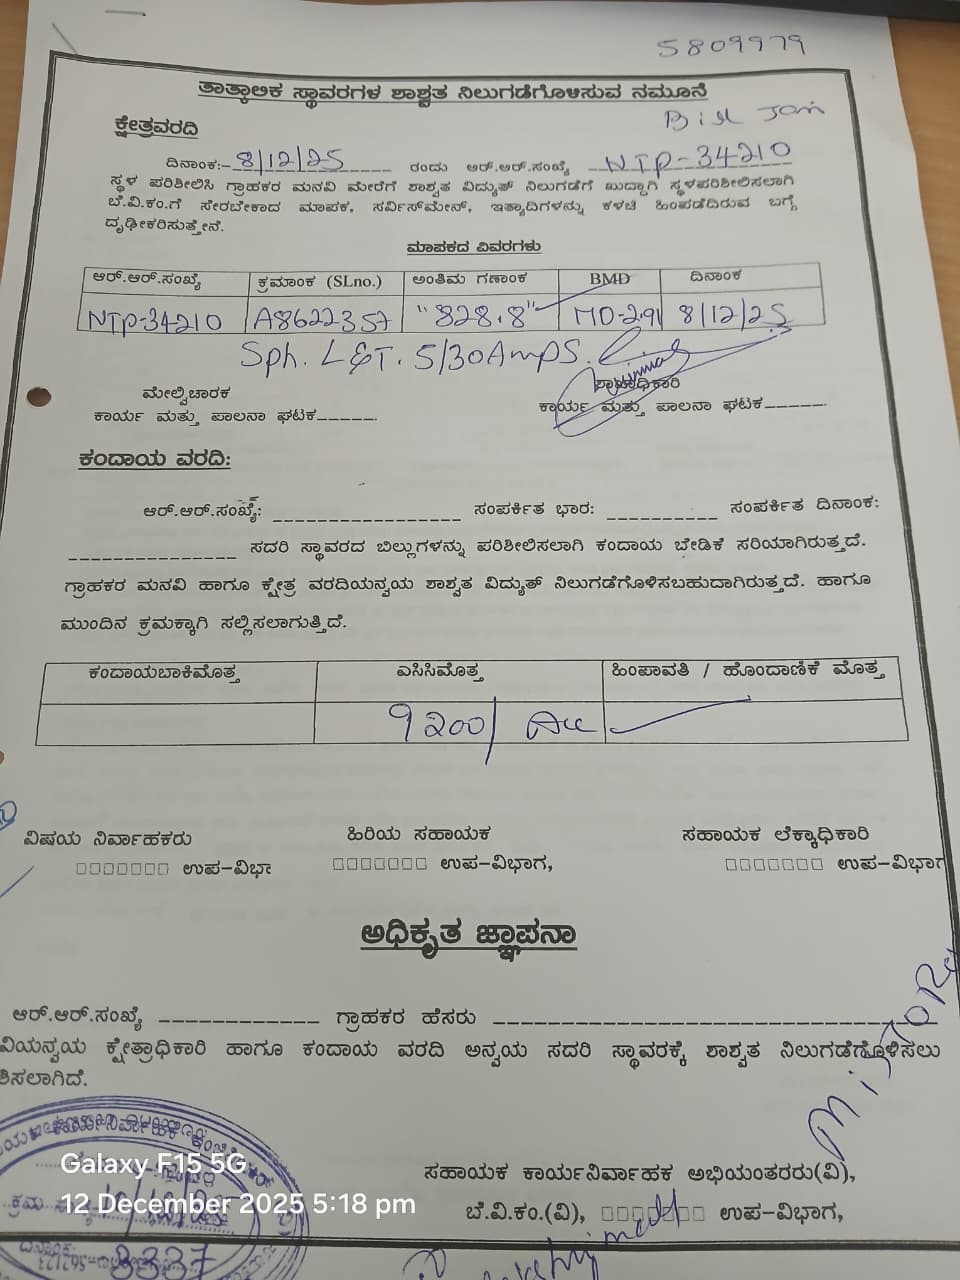 5809979
ತಾತ್ಕಾಲಿಕ ಸ್ಥಾವರಗಳ ಶಾಶ್ವತ ನಿಲುಗಡೆಗೊಳಿಸುವ ನಮೂನೆ
ಕ್ಷೇತ್ರವರದಿ
ದಿನಾಂಕ:- 8/12/25 ರಂದು ಆರ್.ಆರ್.ಸಂಖ್ಯೆ NTP-34210
ಸ್ಥಳ ಪರಿಶೀಲಿಸಿ ಗ್ರಾಹಕರ ಮನವಿ ಮೇರೆಗೆ ಶಾಶ್ವತ ವಿದ್ಯುತ್ ನಿಲುಗಡೆಗೆ ಖುದ್ದಾಗಿ ಸ್ಥಳಪರಿಶೀಲಿಸಲಾಗಿ
ಬೆ.ವಿ.ಕಂ.ಗೆ ಸೇರಬೇಕಾದ ಮಾಪಕ, ಸರ್ವಿಸ್‌ಮೇನ್, ಇತ್ಯಾದಿಗಳನ್ನು ಕಳಚಿ ಹಿಂಪಡೆದಿರುವ ಬಗ್ಗೆ
ದೃಢೀಕರಿಸುತ್ತೇನೆ.
ಮಾಪಕದ ವಿವರಗಳು
ಆರ್.ಆರ್.ಸಂಖ್ಯೆ ಕ್ರಮಾಂಕ (SLno.) ಅಂತಿಮ ಗಣಾಂಕ BMD ದಿನಾಂಕ
NTP-34210 A8622357 "828.8" MD-2.91 8/12/25
Sph. L&T. 5/30Amps.
ಮೇಲ್ವಿಚಾರಕ
ಕಾರ್ಯ ಮತ್ತು ಪಾಲನಾ ಘಟಕ_____. ಕಾರ್ಯ ಮತ್ತು ಪಾಲನಾ ಘಟಕ_____.
ಕಂದಾಯ ವರದಿ:
ಆರ್.ಆರ್.ಸಂಖ್ಯೆ: ________________ ಸಂಪರ್ಕಿತ ಭಾರ: __________ ಸಂಪರ್ಕಿತ ದಿನಾಂಕ:
_______________ ಸದರಿ ಸ್ಥಾವರದ ಬಿಲ್ಲುಗಳನ್ನು ಪರಿಶೀಲಿಸಲಾಗಿ ಕಂದಾಯ ಬೇಡಿಕೆ ಸರಿಯಾಗಿರುತ್ತದೆ.
ಗ್ರಾಹಕರ ಮನವಿ ಹಾಗೂ ಕ್ಷೇತ್ರ ವರದಿಯನ್ವಯ ಶಾಶ್ವತ ವಿದ್ಯುತ್ ನಿಲುಗಡೆಗೊಳಿಸಬಹುದಾಗಿರುತ್ತದೆ. ಹಾಗೂ
ಮುಂದಿನ ಕ್ರಮಕ್ಕಾಗಿ ಸಲ್ಲಿಸಲಾಗುತ್ತಿದೆ.
ಕಂದಾಯಬಾಕಿಮೊತ್ತ ಎಸಿಸಿಮೊತ್ತ ಹಿಂಪಾವತಿ / ಹೊಂದಾಣಿಕೆ ಮೊತ್ತ
9200/
ವಿಷಯ ನಿರ್ವಾಹಕರು ಹಿರಿಯ ಸಹಾಯಕ ಸಹಾಯಕ ಲೆಕ್ಕಾಧಿಕಾರಿ
□□□□□□□ ಉಪ-ವಿಭಾ □□□□□□□ ಉಪ-ವಿಭಾಗ, □□□□□□□ ಉಪ-ವಿಭಾಗ
ಅಧಿಕೃತ ಜ್ಞಾಪನಾ
ಆರ್.ಆರ್.ಸಂಖ್ಯೆ _____________ ಗ್ರಾಹಕರ ಹೆಸರು ______________________________
ವಿಯನ್ವಯ ಕ್ಷೇತ್ರಾಧಿಕಾರಿ ಹಾಗೂ ಕಂದಾಯ ವರದಿ ಅನ್ವಯ ಸದರಿ ಸ್ಥಾವರಕ್ಕೆ ಶಾಶ್ವತ ನಿಲುಗಡೆಗೊಳಿಸಲು
ಶಿಸಲಾಗಿದೆ.
ಸಹಾಯಕ ಕಾರ್ಯನಿರ್ವಾಹಕ ಅಭಿಯಂತರರು(ವಿ),
ಬೆ.ವಿ.ಕಂ.(ವಿ), □□□□□□□ ಉಪ-ವಿಭಾಗ,
Galaxy F15 5G
12 December 2025 5:18 pm
8337